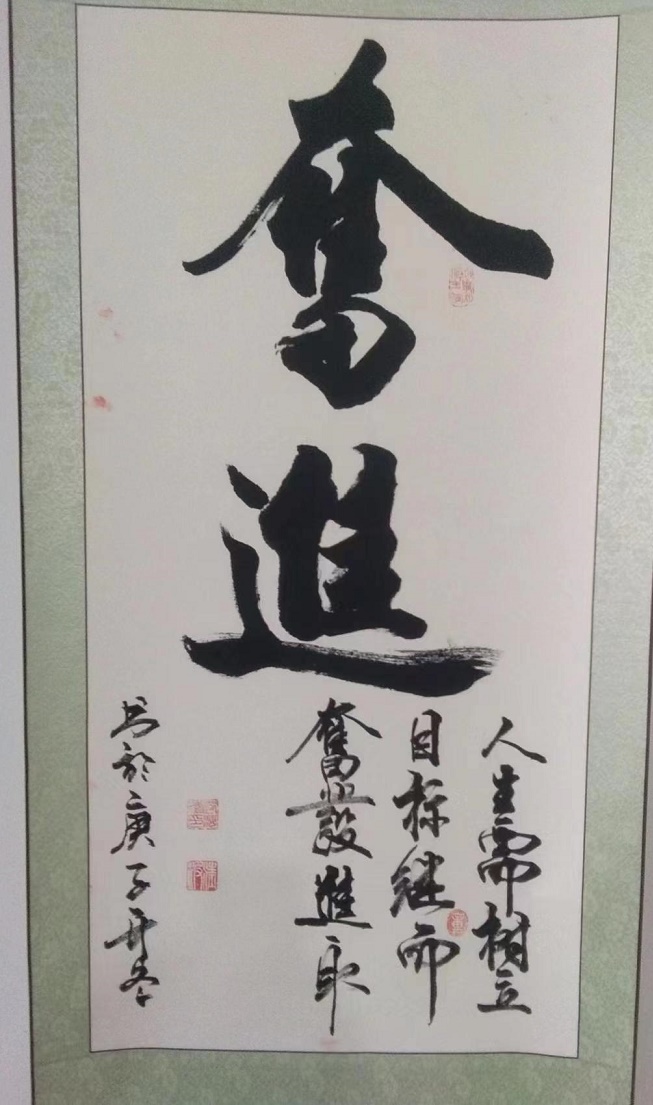 奮進
人生需樹立
目标继而
奮發進取
书於庚子开冬